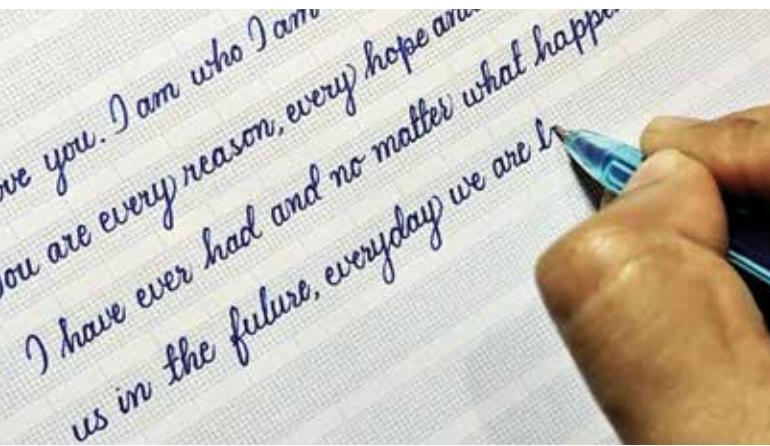 you. I am who I am
you are every reason, every hope and
I have ever had and no matter what
us in the future, everyday we are